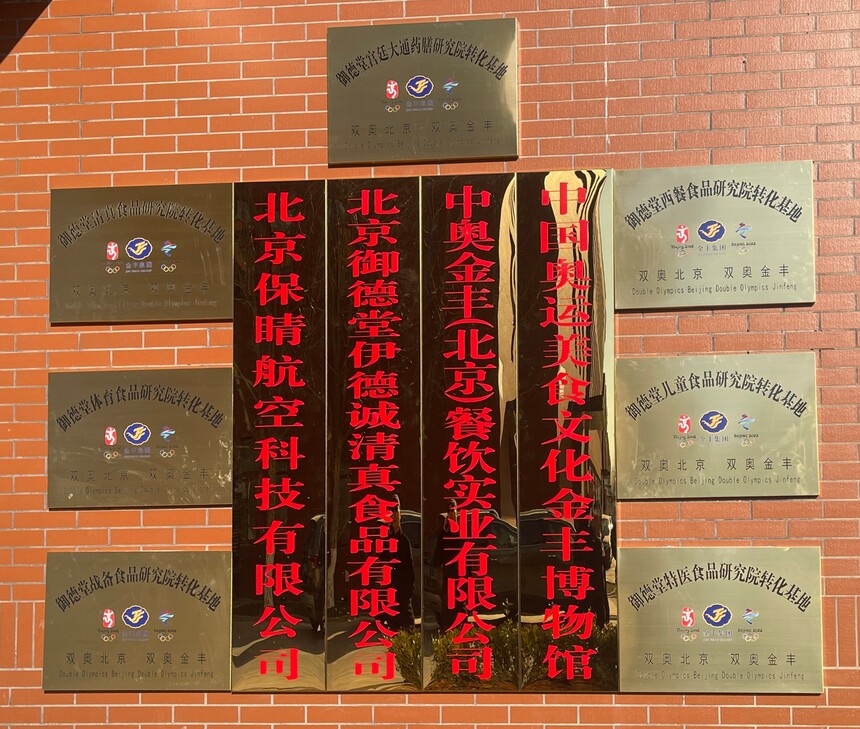 御德堂宫廷大通药膳研究院转化基地
金丰集团
双奥北京 双奥金丰
Double Olympics Beijing Double Olympics Jinfeng
御德堂清真食品研究院转化基地
金丰集团
双奥北京 双奥金丰
Double Olympics Beijing Double Olympics Jinfeng
御德堂体育食品研究院转化基地
金丰集团
双奥北京 双奥金丰
Olympics Be
御德堂战备食品研究院转化基地
双奥北京 双奥金丰
Double Olympics Beijing Double Olympics Jinfeng
北京保晴航空科技有限公司
北京御德堂伊德诚清真食品有限公司
中奥金丰(北京)餐饮实业有限公司
中国奥运美食文化金丰博物馆
御德堂西餐食品研究院转化基地
Beijing 2008
金丰集团
Beijing 2022
双奥北京 双奥金丰
Double Olympics Beijing Double Olympics Jinfeng
御德堂儿童食品研究院转化基地
Beijing 2008
金丰集团
Beijing 2022
双奥北京 双奥金丰
Double Olympics Beijing Double Olympics Jinfeng
御德堂特医食品研究院转化基地
Beijing 2008
金丰集团
Beijing 2022
双奥北京 双奥金丰
Double Olympics Beijing Double Olympics Jinfeng